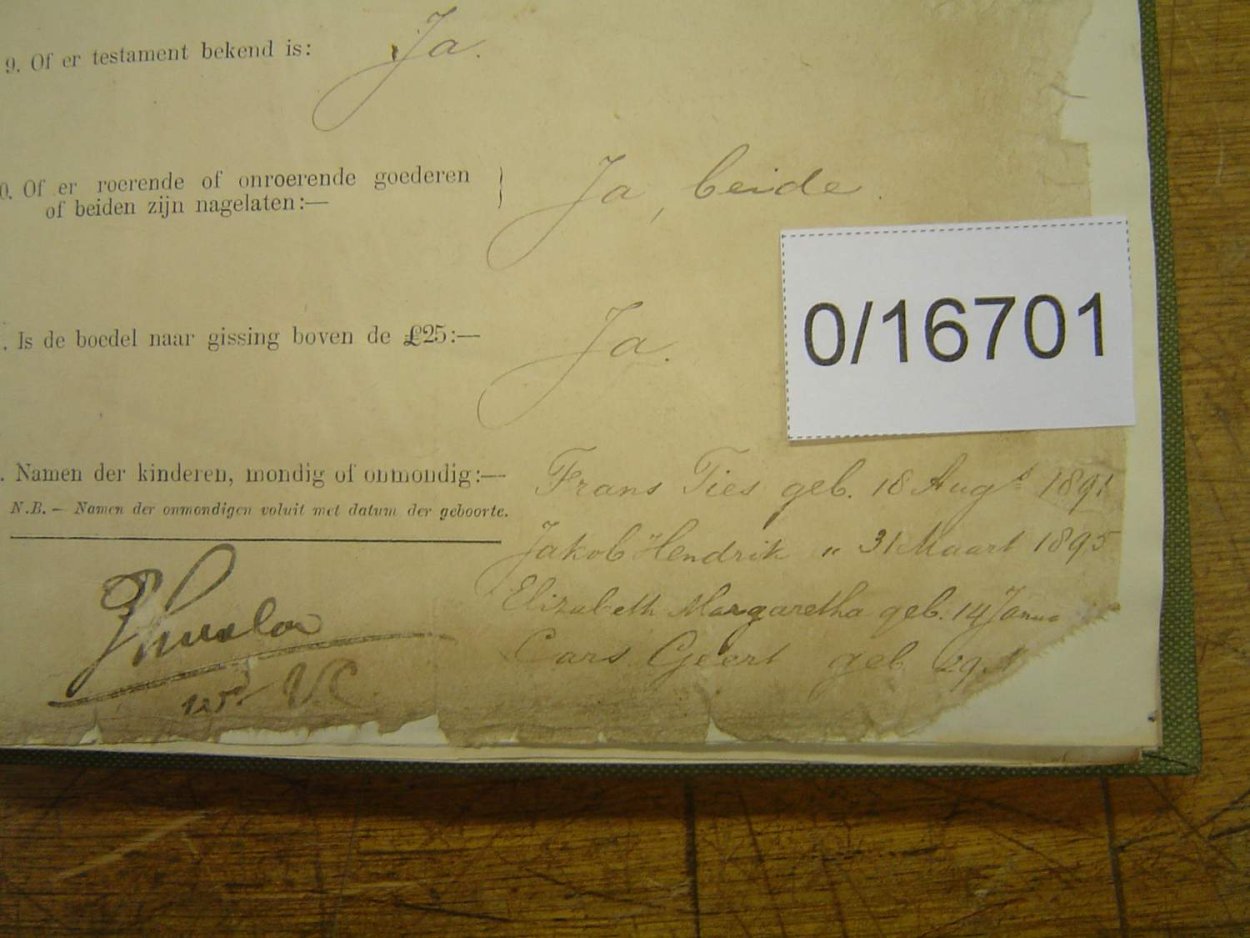 9. Of er testament bekend is: Ja.
0. Of er roerende of onroerende goederen
of beiden zijn nagelaten:— Ja, beide.
. Is de boedel naar gissing boven de £25:— Ja.
0/16701
. Namen der kinderen, mondig of onmondig:— Frans Ties geb. 18 Augs 1891
N.B. — Namen der onmondigen voluit met datum der geboorte.
Jakob Hendrik „ 31 Maart 1895
Elizabeth Margaretha geb. 14 Janua
Cars Geert geb 29
wr. V.C.